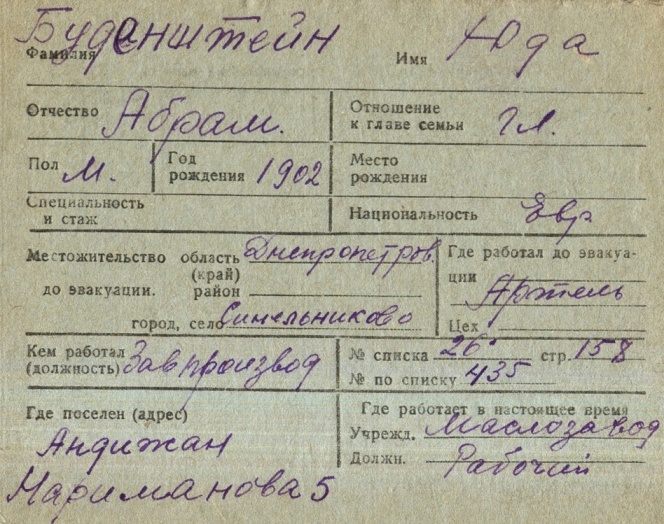 Фамилия Буданштейн Имя Юда
Отчество Абрам. Отношение к главе семьи Гл.
Пол М. Год рождения 1902 Место рождения
Специальность и стаж Национальность Евр.
Местожительство до эвакуации. область (край) Днепропетров.
район
город, село Синельниково
Где работал до эвакуации Артель
Цех
Кем работал (должность) Завпроизвод
№ списка 26 стр. 158
№ по списку 435
Где поселен (адрес)
Андижан
Нариманова 5
Где работает в настоящее время
Учрежд. Маслозавод
Должн. Рабочий